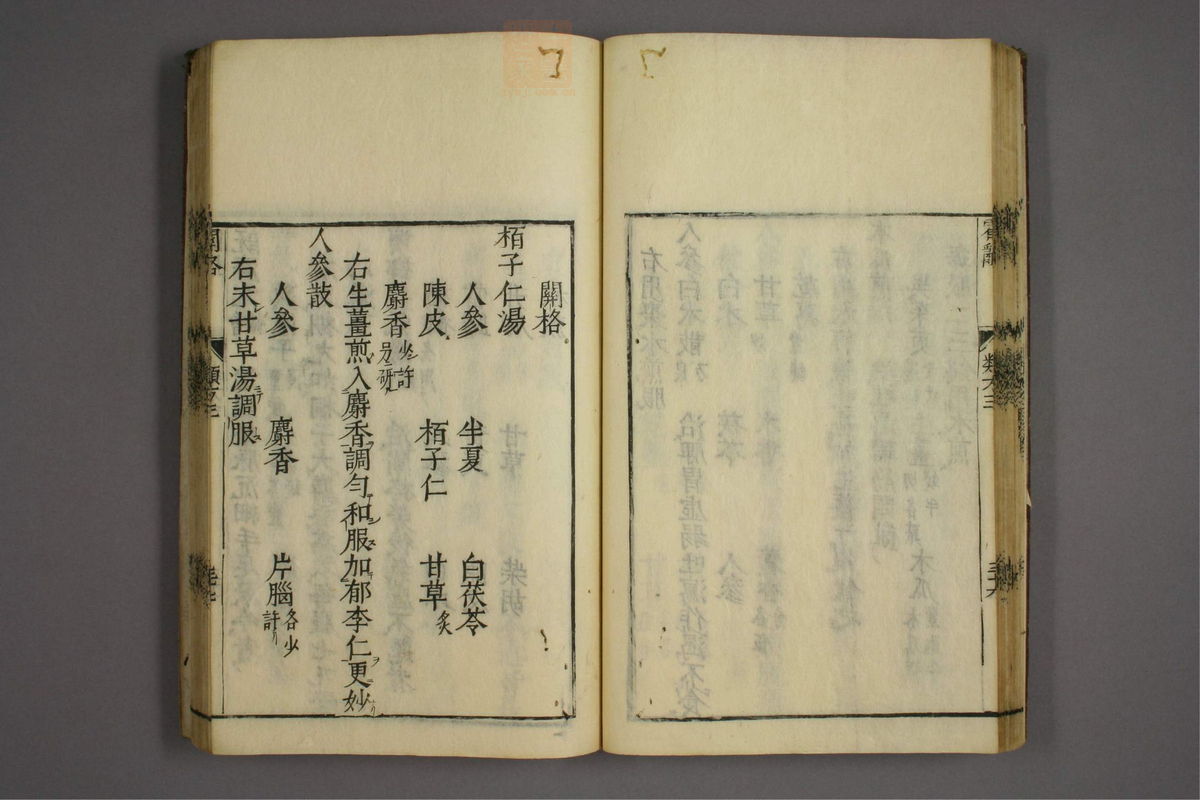 類六三
關格
栢子仁湯
人參 半夏 白茯苓
陳皮 栢子仁 甘草炙
麝香少許另研
右生薑煎入麝香調勻和服加郁李仁更妙
人參散
人參 麝香 片腦各少許
右末甘草湯調服
關格